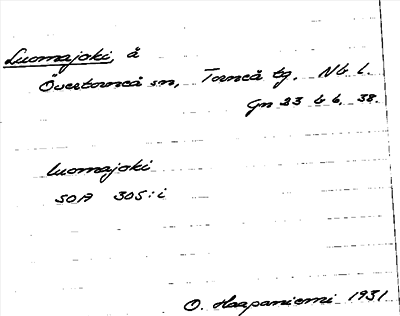 Luomajoki, å
Övertorneå sn, Torneå tg. Nb l.
Gn 23 4 b, 38.
luomajoki
SOA 305:i
O. Haapaniemi 1931